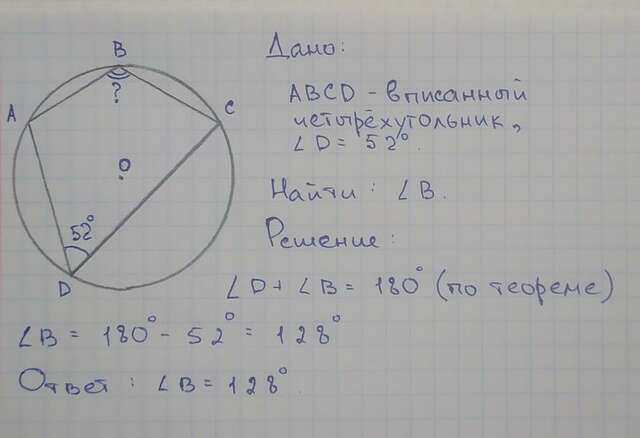 B
?
A
C
O
52°
D
Дано:
ABCD - вписанный
четырёхугольник,
∠D = 52°.
Найти: ∠B.
Решение:
∠D + ∠B = 180° (по теореме)
∠B = 180° - 52° = 128°
Ответ: ∠B = 128°.